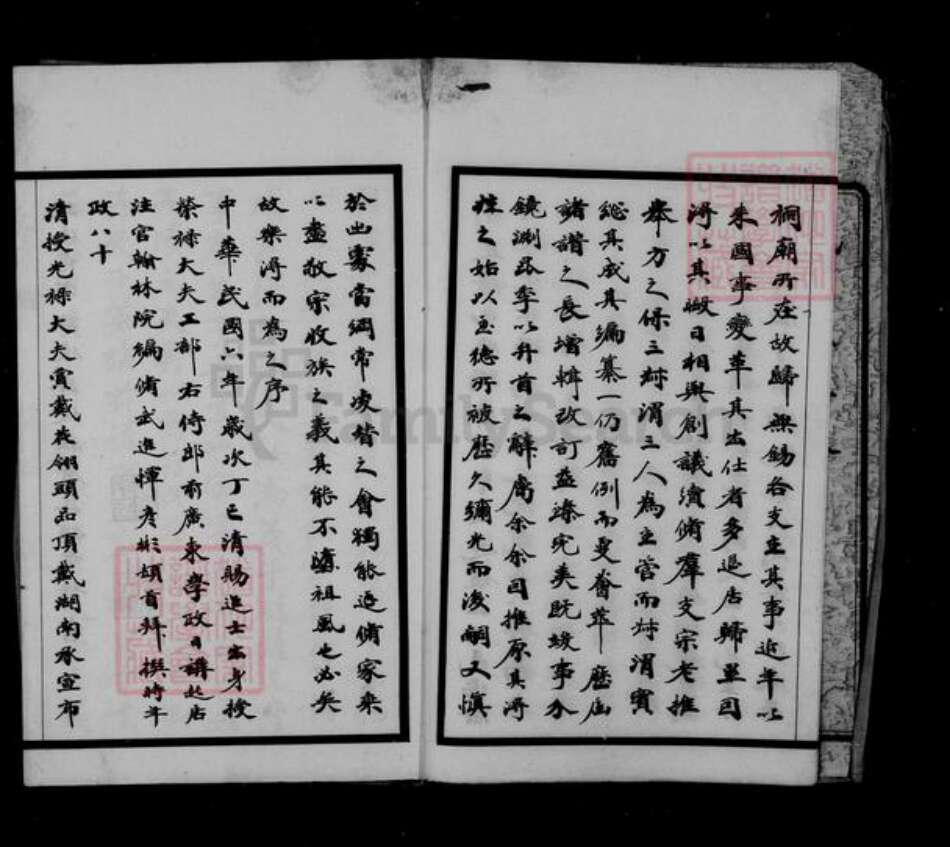 祠廟所在故歸無錫各支主其事近年以
來國事變革其出仕者多退居歸里因
得以其暇日相與創議續脩羣支宗老推
舉方之保三紂渭三人為主管而紂渭實
總其成其編纂一仍舊例而更薈萃歷屆
諸譜之長增輯改訂益臻完美既竣事介
鏡淵界季以弁首之辭屬余余因推原其得
姓之始以至德所被歷久彌光而後嗣又慎
於出處當綱常凌替之會獨能追脩家乘
以盡敬宗收族之義其能不墮祖風也必矣
故樂得而為之序
中華民國六年歲次丁巳清賜進士出身授
榮祿大夫工部右侍郎前廣東學政日講起居
注官翰林院編脩武進惲彥彬頓首拜撰時年
政八十
清授光祿大夫賞戴花翎頭品頂戴湖南承宣布
FamilySearch